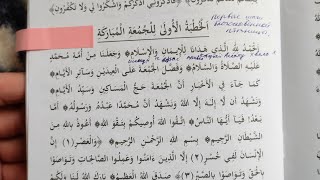 فَاذْكُرُونِي أَذْكُرْكُمْ وَاشْكُرُوا لِي وَلَا تَكْفُرُونِ
اَلْخُطْبَةُ الْأُولَى لِلْجُمُعَةِ الْمُبَارَكَةِ
اَلْحَمْدُ لِلّٰهِ الَّذِي هَدَانَا لِلْإِيمَانِ وَالْإِسْلَامِ وَجَعَلَنَا مِنْ أُمَّةِ مُحَمَّدٍ
عَلَيْهِ الصَّلَاةُ وَالسَّلَامُ وَفَضَّلَ الْجُمُعَةَ عَلَى الْعِيدَيْنِ وَسَائِرِ الْأَيَّامِ
كَمَا جَاءَ فِي الْأَخْبَارِ الْجُمُعَةُ حَجُّ الْمَسَاكِينِ وَسَيِّدُ الْأَيَّامِ
وَنَشْهَدُ أَنْ لَا إِلٰهَ إِلَّا اللهُ وَنَشْهَدُ أَنَّ مُحَمَّدًا عَبْدُهُ وَرَسُولُهُ أَمَّا
بَعْدُ فَيَا أَيُّهَا النَّاسُ اتَّقُوا اللهَ أُوصِيكُمْ بِتَقْوَى اللهِ أَعُوذُ بِاللهِ مِنَ
الشَّيْطَانِ الرَّجِيمِ بِسْمِ اللهِ الرَّحْمٰنِ الرَّحِيمِ وَالْعَصْرِ (١) إِنَّ
الْإِنْسَانَ لَفِي خُسْرٍ (٢) إِلَّا الَّذِينَ آمَنُوا وَعَمِلُوا الصَّالِحَاتِ وَتَوَاصَوْا
بِالْحَقِّ وَتَوَاصَوْا بِالصَّبْرِ (٣) بَارَكَ اللهُ لَنَا وَلَكُمْ